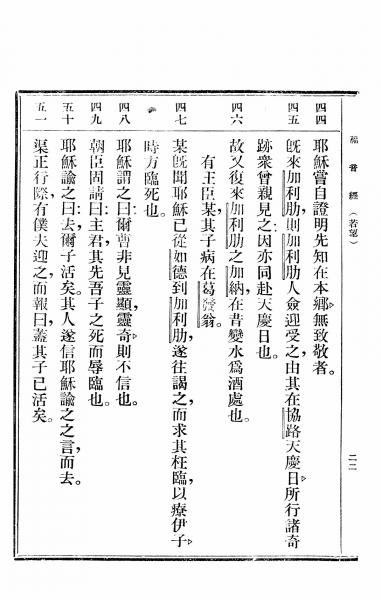 福音經（若望）
二二
四四 耶穌嘗自證明先知在本鄉無致敬者。
四五 旣來加利肋，則加利肋人僉迎受之，由其在協路天慶日所行諸奇
跡，衆曾親見之，因亦同赴天慶日也。
四六 故又復來加利肋之加納，在昔變水爲酒處也。
有王臣某，其子病在葛發翁。
四七 某旣聞耶穌已從如德到加利肋，遂往謁之，而求其枉臨，以療伊子，
時方臨死也。
四八 耶穌謂之曰，爾曹非見靈顯靈奇，則不信也。
四九 朝臣固請曰，主君，其先吾子之死而辱臨也。
五十 耶穌諭之曰，去，爾子活矣。其人遂信耶穌諭之之言，而去。
五一 渠正行際，有僕夫迎之，而報曰，蓋其子已活矣。